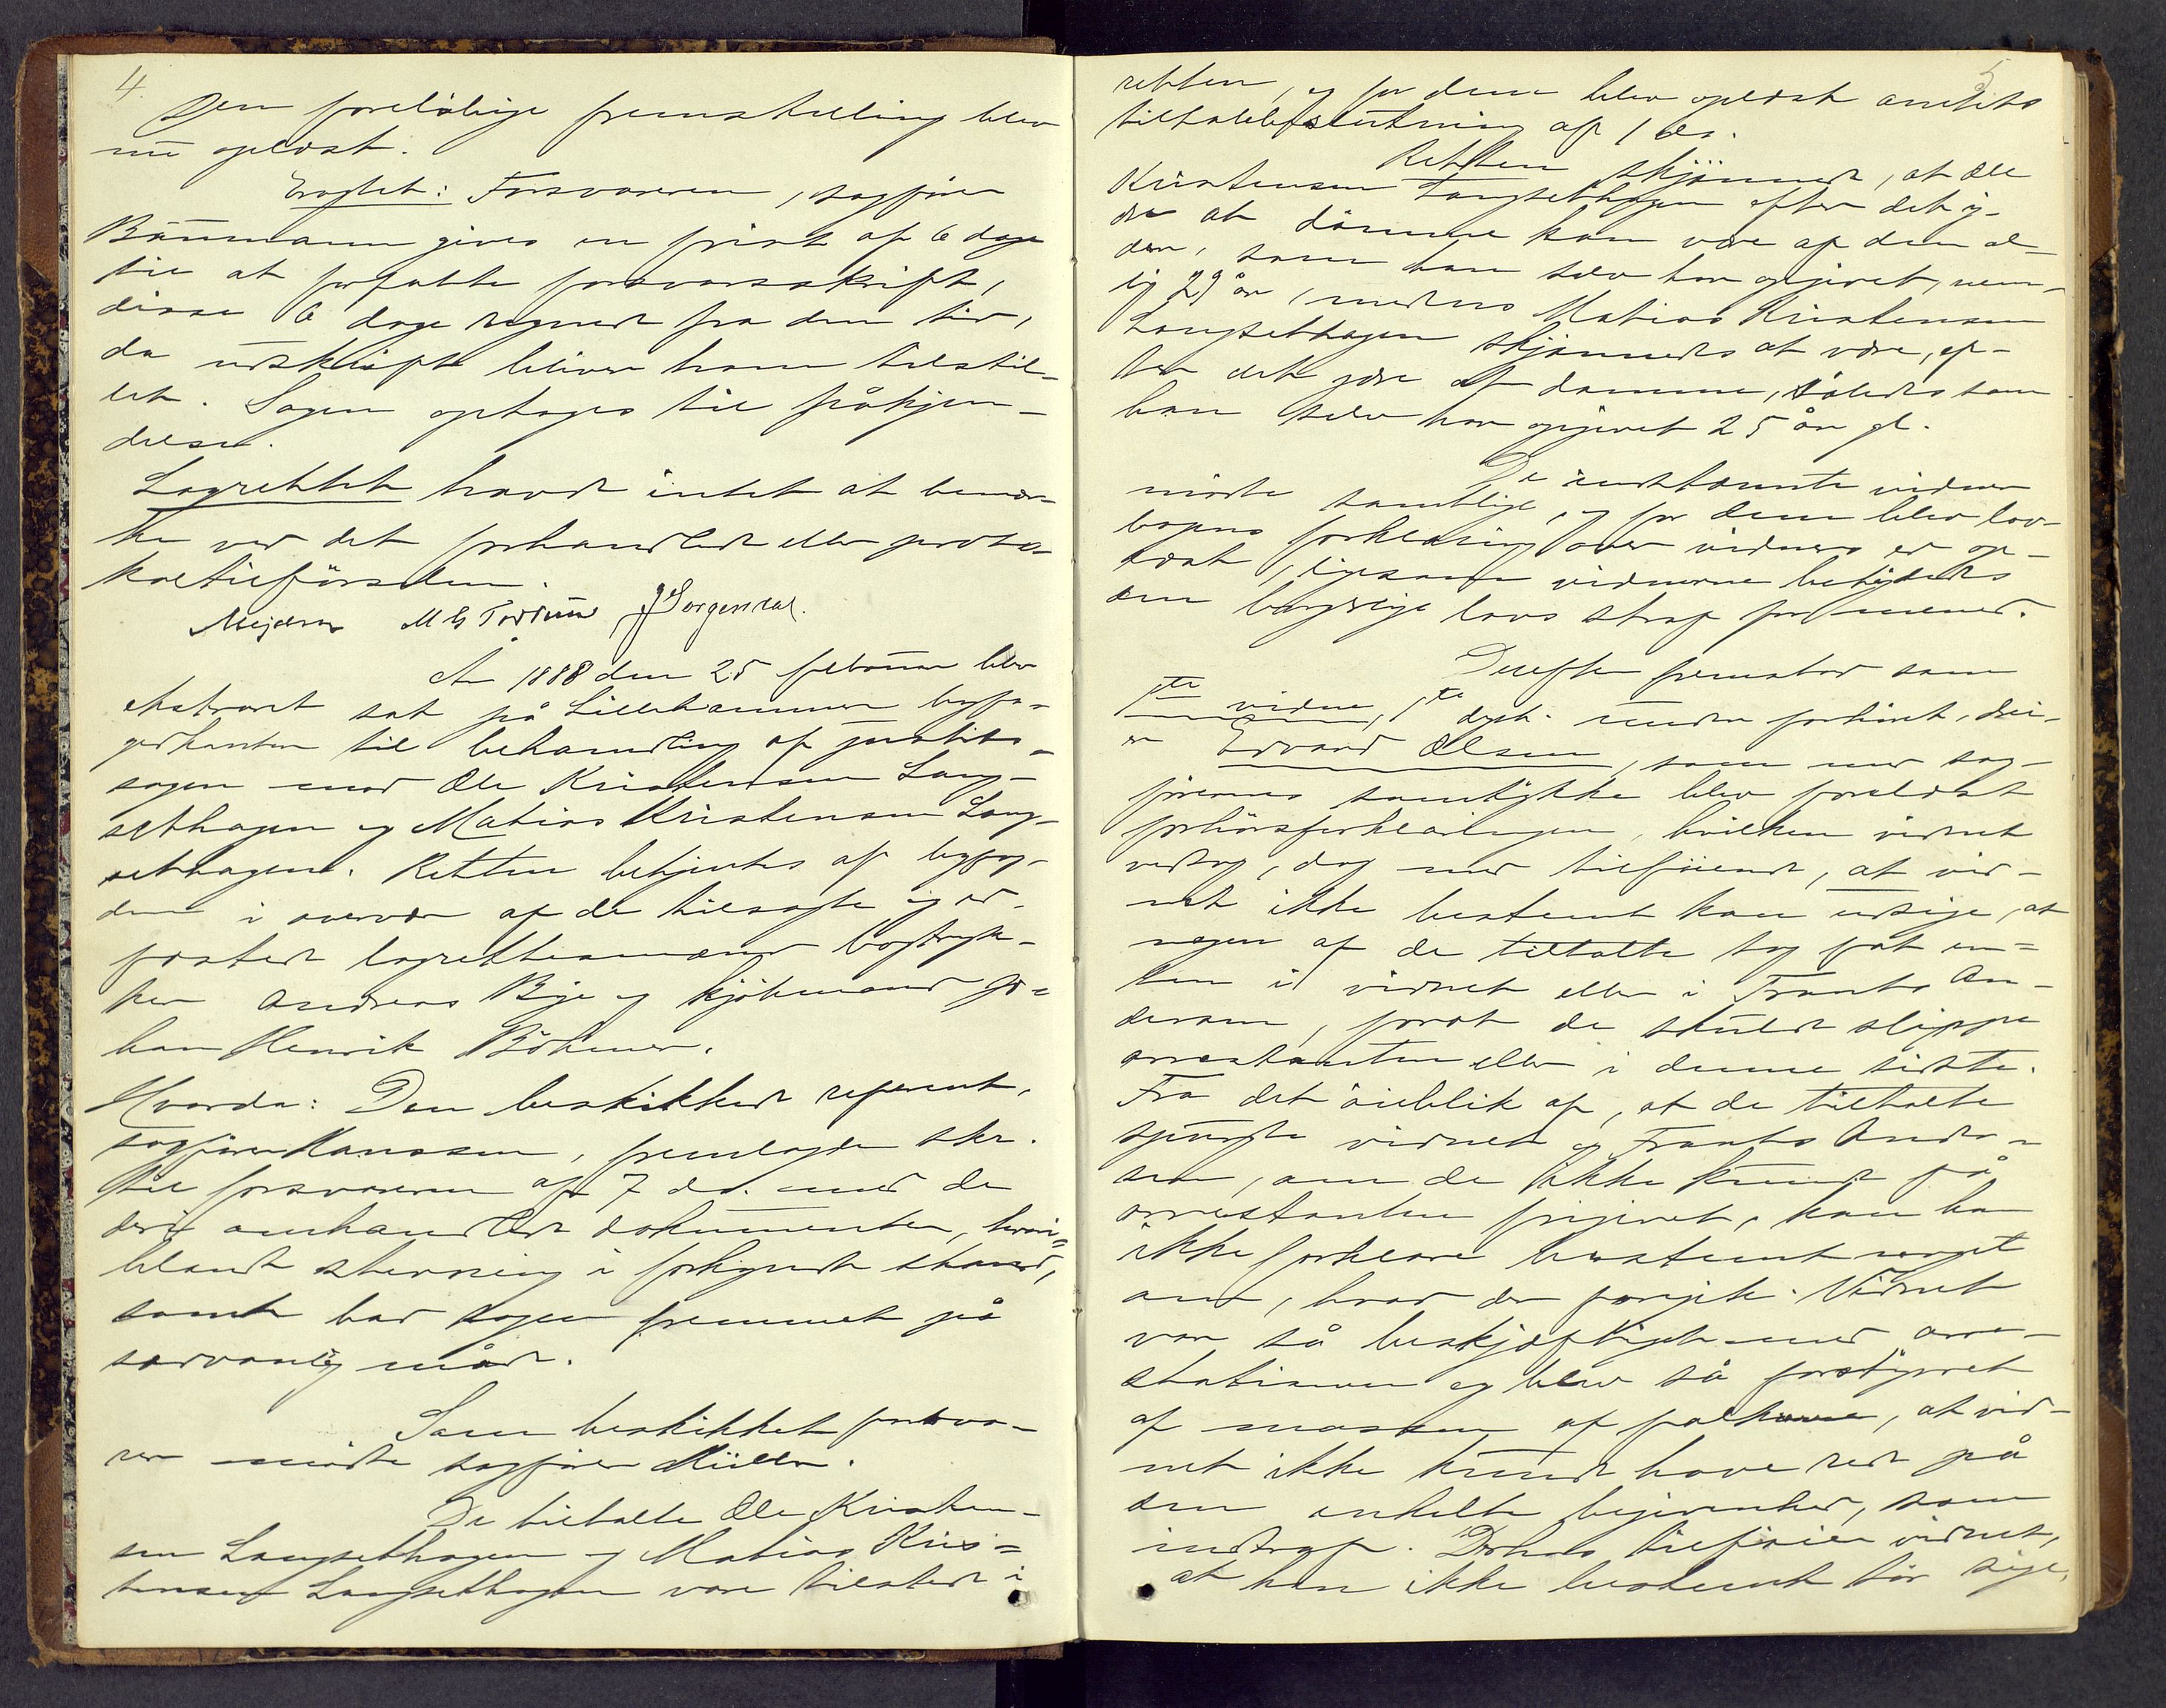 4.
Den foreløbige fremstilling blev
nu oplæst.
Eragtet: Forsvareren, sagfører
Bäumann gives en frist af 6 dage
til at forfatte forsvarsskrift,
disse 6 dage regnet fra den tid,
da udskrift bliver ham tilstil-
let. Sagen optages til påkjen-
delse.
Lagrettet havde intet at bemær-
ke ved det forhandlede eller proto-
koltilførselen.
Mejdell M G J Jørgenstad.
År 1888 den 25 februar blev
ekstraret sat på Lillehammer byfo-
gedkontor til behandling af justits-
sagen mod Ole Kristensen Lang-
sethagen og Matias Kristensen Lang-
sethagen. Retten betjentes af byfog-
den i overvær af de tilsagte og ed-
fæstede lagrettesmænd bogtryk-
ker Andreas Bye og kjøbmand Jo-
han Henrik Böhmer.
Hvorda: Den beskikkede referent,
sagfører Hanssen, fremlagde skr.
til forsvareren af 7 ds. med de
deri omhandlede dokumenter, heri-
blandt stevning i forkyndt stand,
samt bad sagen fremmet på
sædvanlig måde.
Som beskikket forsva-
rer mødte sagfører Müller.
De tiltalte Ole Kristen-
sen Langsethagen og Matias Kris-
tensen Langsethagen vare tilstede i
5
retten, og for dem blev oplæst amtets
tiltalebeslutning af 1 ds.
Retten skjønnede, at Ole
Kristensen Langsethagen efter det y-
dre at dømme kan være af den al-
der, som han selv har opgivet, nem-
lig 29 år, medens Matias Kristensen
Langsethagen skjønnedes at være, ef-
ter det ydre at dømme, således som
han selv har opgivet 25 år gl.
De indstevnte vidner
mødte samtlige, og for dem blev lov-
bogens forklaring over vidners ed op-
læst, ligesom vidnerne betydedes
den borgerlige lovs straf for mened.
Derefter fremstod som
1ste vidne, 1ste dgsk. under forhøret, drei-
er Edvard Olsen, som med sag-
førernes samtykke blev forelæst
forhørsforklaringen, hvilken vidnet
vedtog, dog med tilføiende, at vid-
net ikke bestemt kan udsige, at
nogen af de tiltalte tog fat en-
ten i vidnet eller i Frants An-
dersen, forat de skulde slippe
arrestanten eller i denne sidste.
Fra det øieblik af, at de tiltalte
spurgte vidnet og Frants Ander-
sen, om de ikke kunde få
arrestanten frigivet, kan han
ikke forklare bestemt noget
om, hvad der foregik. Vidnet
var så beskjæftiget med arre-
stationen og blev så forstyrret
af massen af folk, at vid-
net ikke kunde have rede på
den enkelte begivenhed, som
indtraf. Derhos tilføier vidnet,
at han ikke bestemt tør sige,